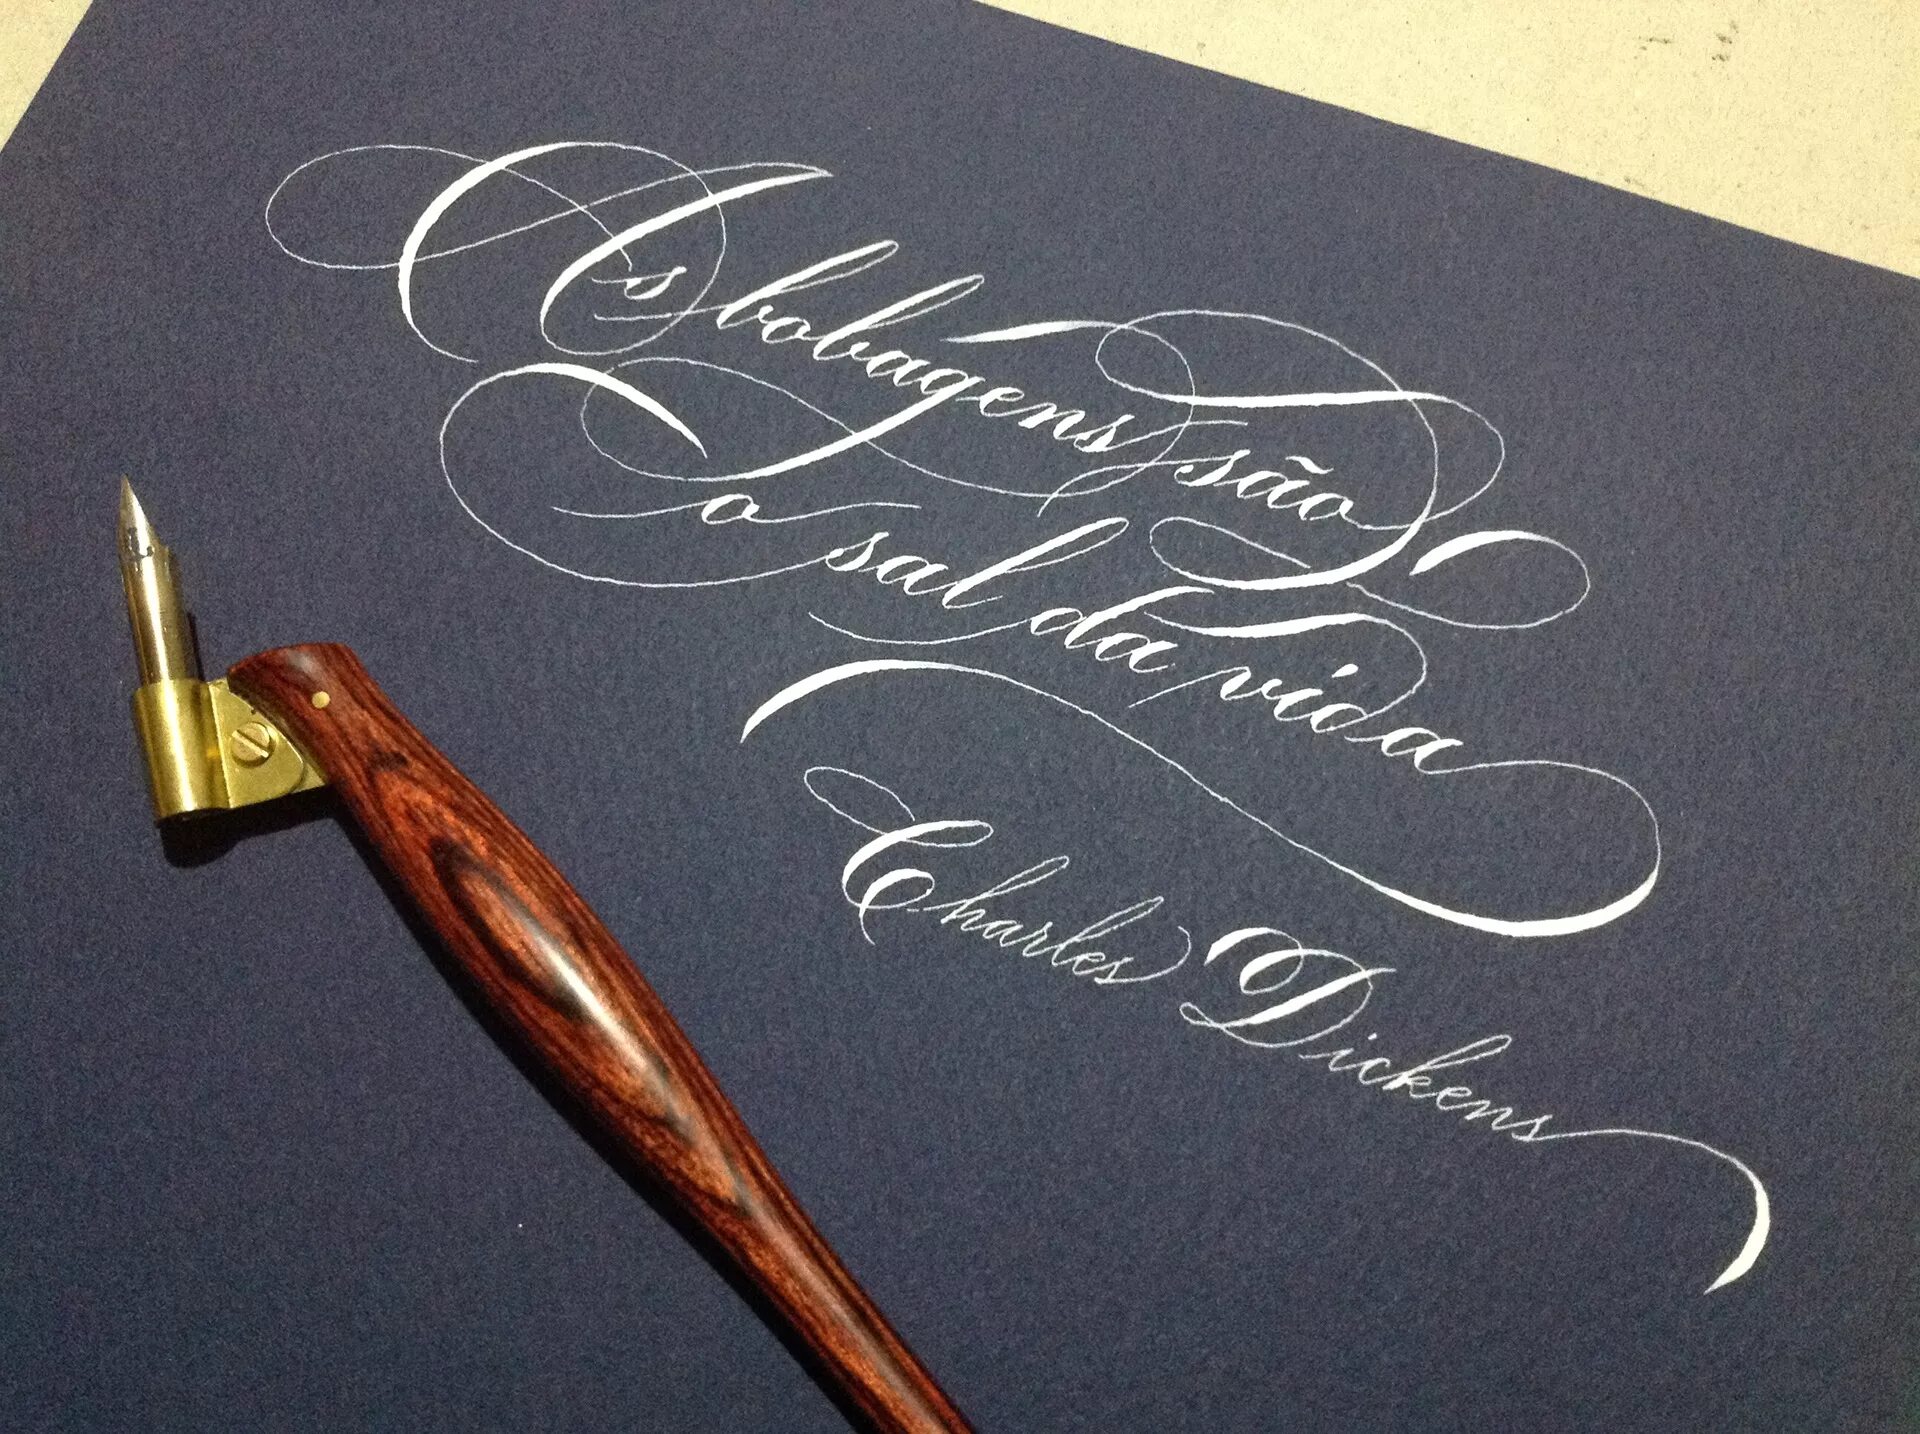 As bobagens são
o sal da vida
Charles Dickens